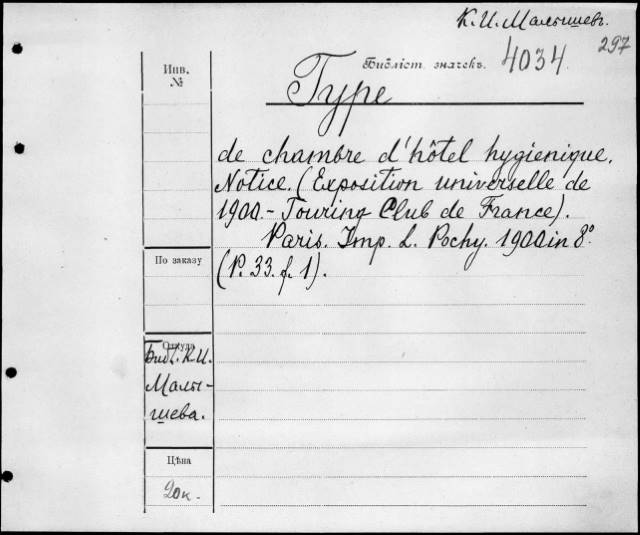 К. И. Малышевъ.
297
Инв.
№
Библіот. значекъ. 4034.
Type
de chambre d'hôtel hygienique.
Notice. (Exposition universelle de
1900. - Touring Club de France).
Paris. Imp. L. Pochy. 1900 in 8°.
(P. 33. f. 1).
По заказу
Откуда
Библ. К. И.
Малы-
шева.
Цѣна
20 к.